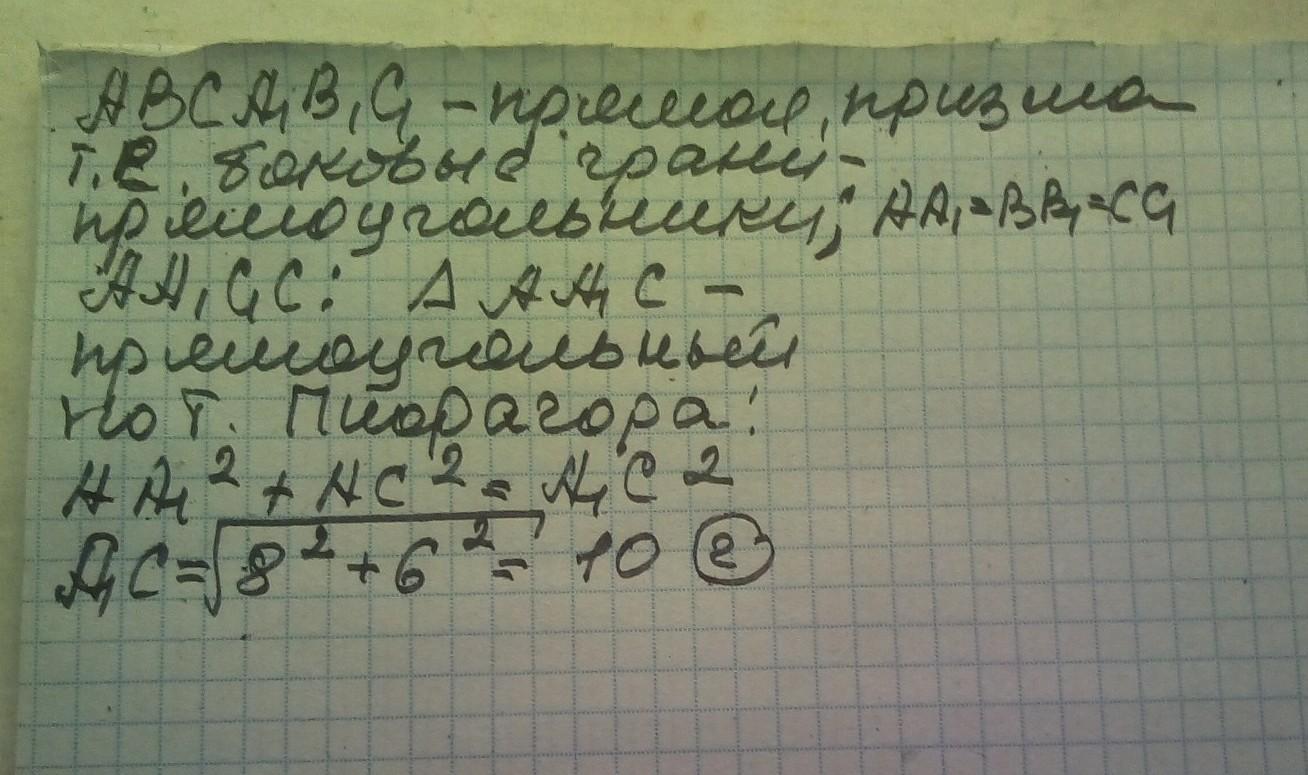 ABCA₁B₁C₁ – прямая, призма
т.е. боковые грани –
прямоугольники; AA₁=BB₁=CC₁
AA₁C₁C: Δ AA₁C –
прямоугольный
По т. Пифагора:
AA₁² + AC² = A₁C²
A₁C = √8² + 6² = 10 (г)